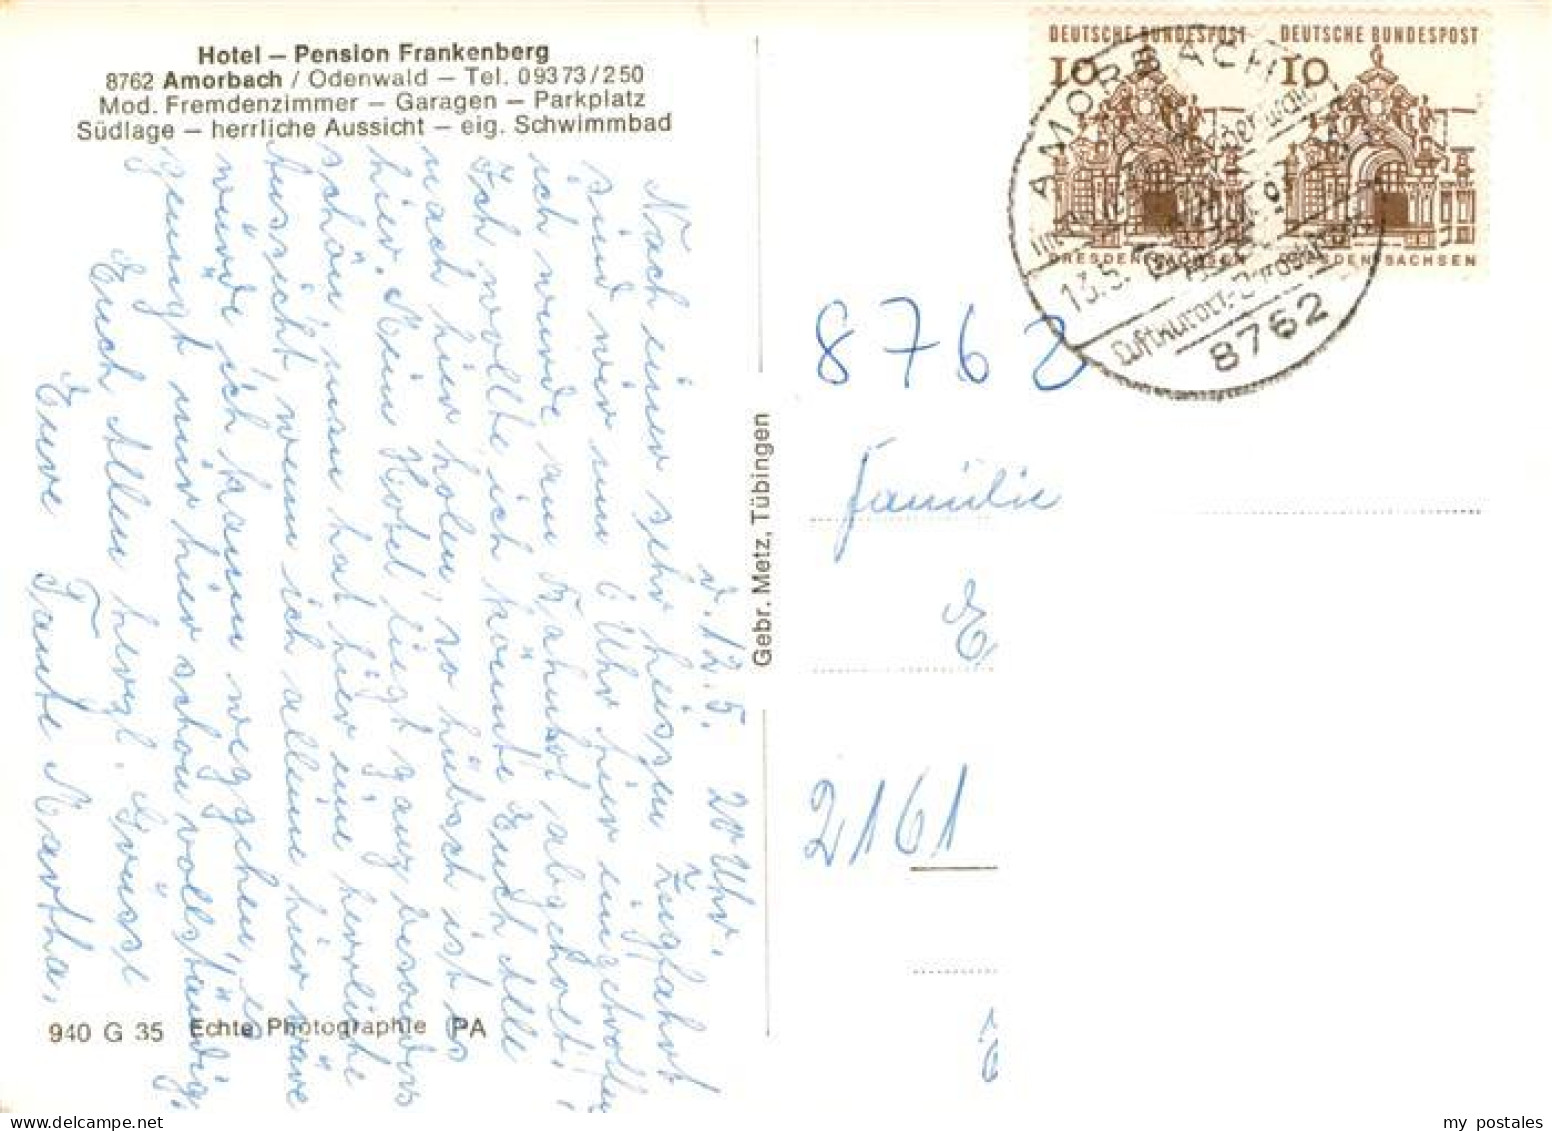 Hotel – Pension Frankenberg
8762 Amorbach / Odenwald – Tel. 09373/250
Mod. Fremdenzimmer – Garagen – Parkplatz
Südlage – herrliche Aussicht – eig. Schwimmbad
d. 12. 5. 20 Uhr.
Nach einer sehr heissen Zugfahrt
sind wir um 6 Uhr hier eingetroffen
ich wurde am Bahnhof abgeholt.
Ich wollte ich könnte Euch Alle
nach hier holen, so hübsch ist es
hier. Mein Hotel liegt ganz besonders
schön, man hat hier eine herrliche
Aussicht, wenn ich alleine hier wäre
würde ich kaum weggehen, es
genügt mir hier schon vollständig.
Euch Allen herzl. Grüsse
Eure Tante Martha.
940 G 35 Echte Photographie PA
Gebr. Metz, Tübingen
DEUTSCHE BUNDESPOST
10
DRESDEN/SACHSEN
DEUTSCHE BUNDESPOST
10
DRESDEN/SACHSEN
AMORBACH
13.5.
Luftkurort
8762
8762
Familie
E
2161
my postales